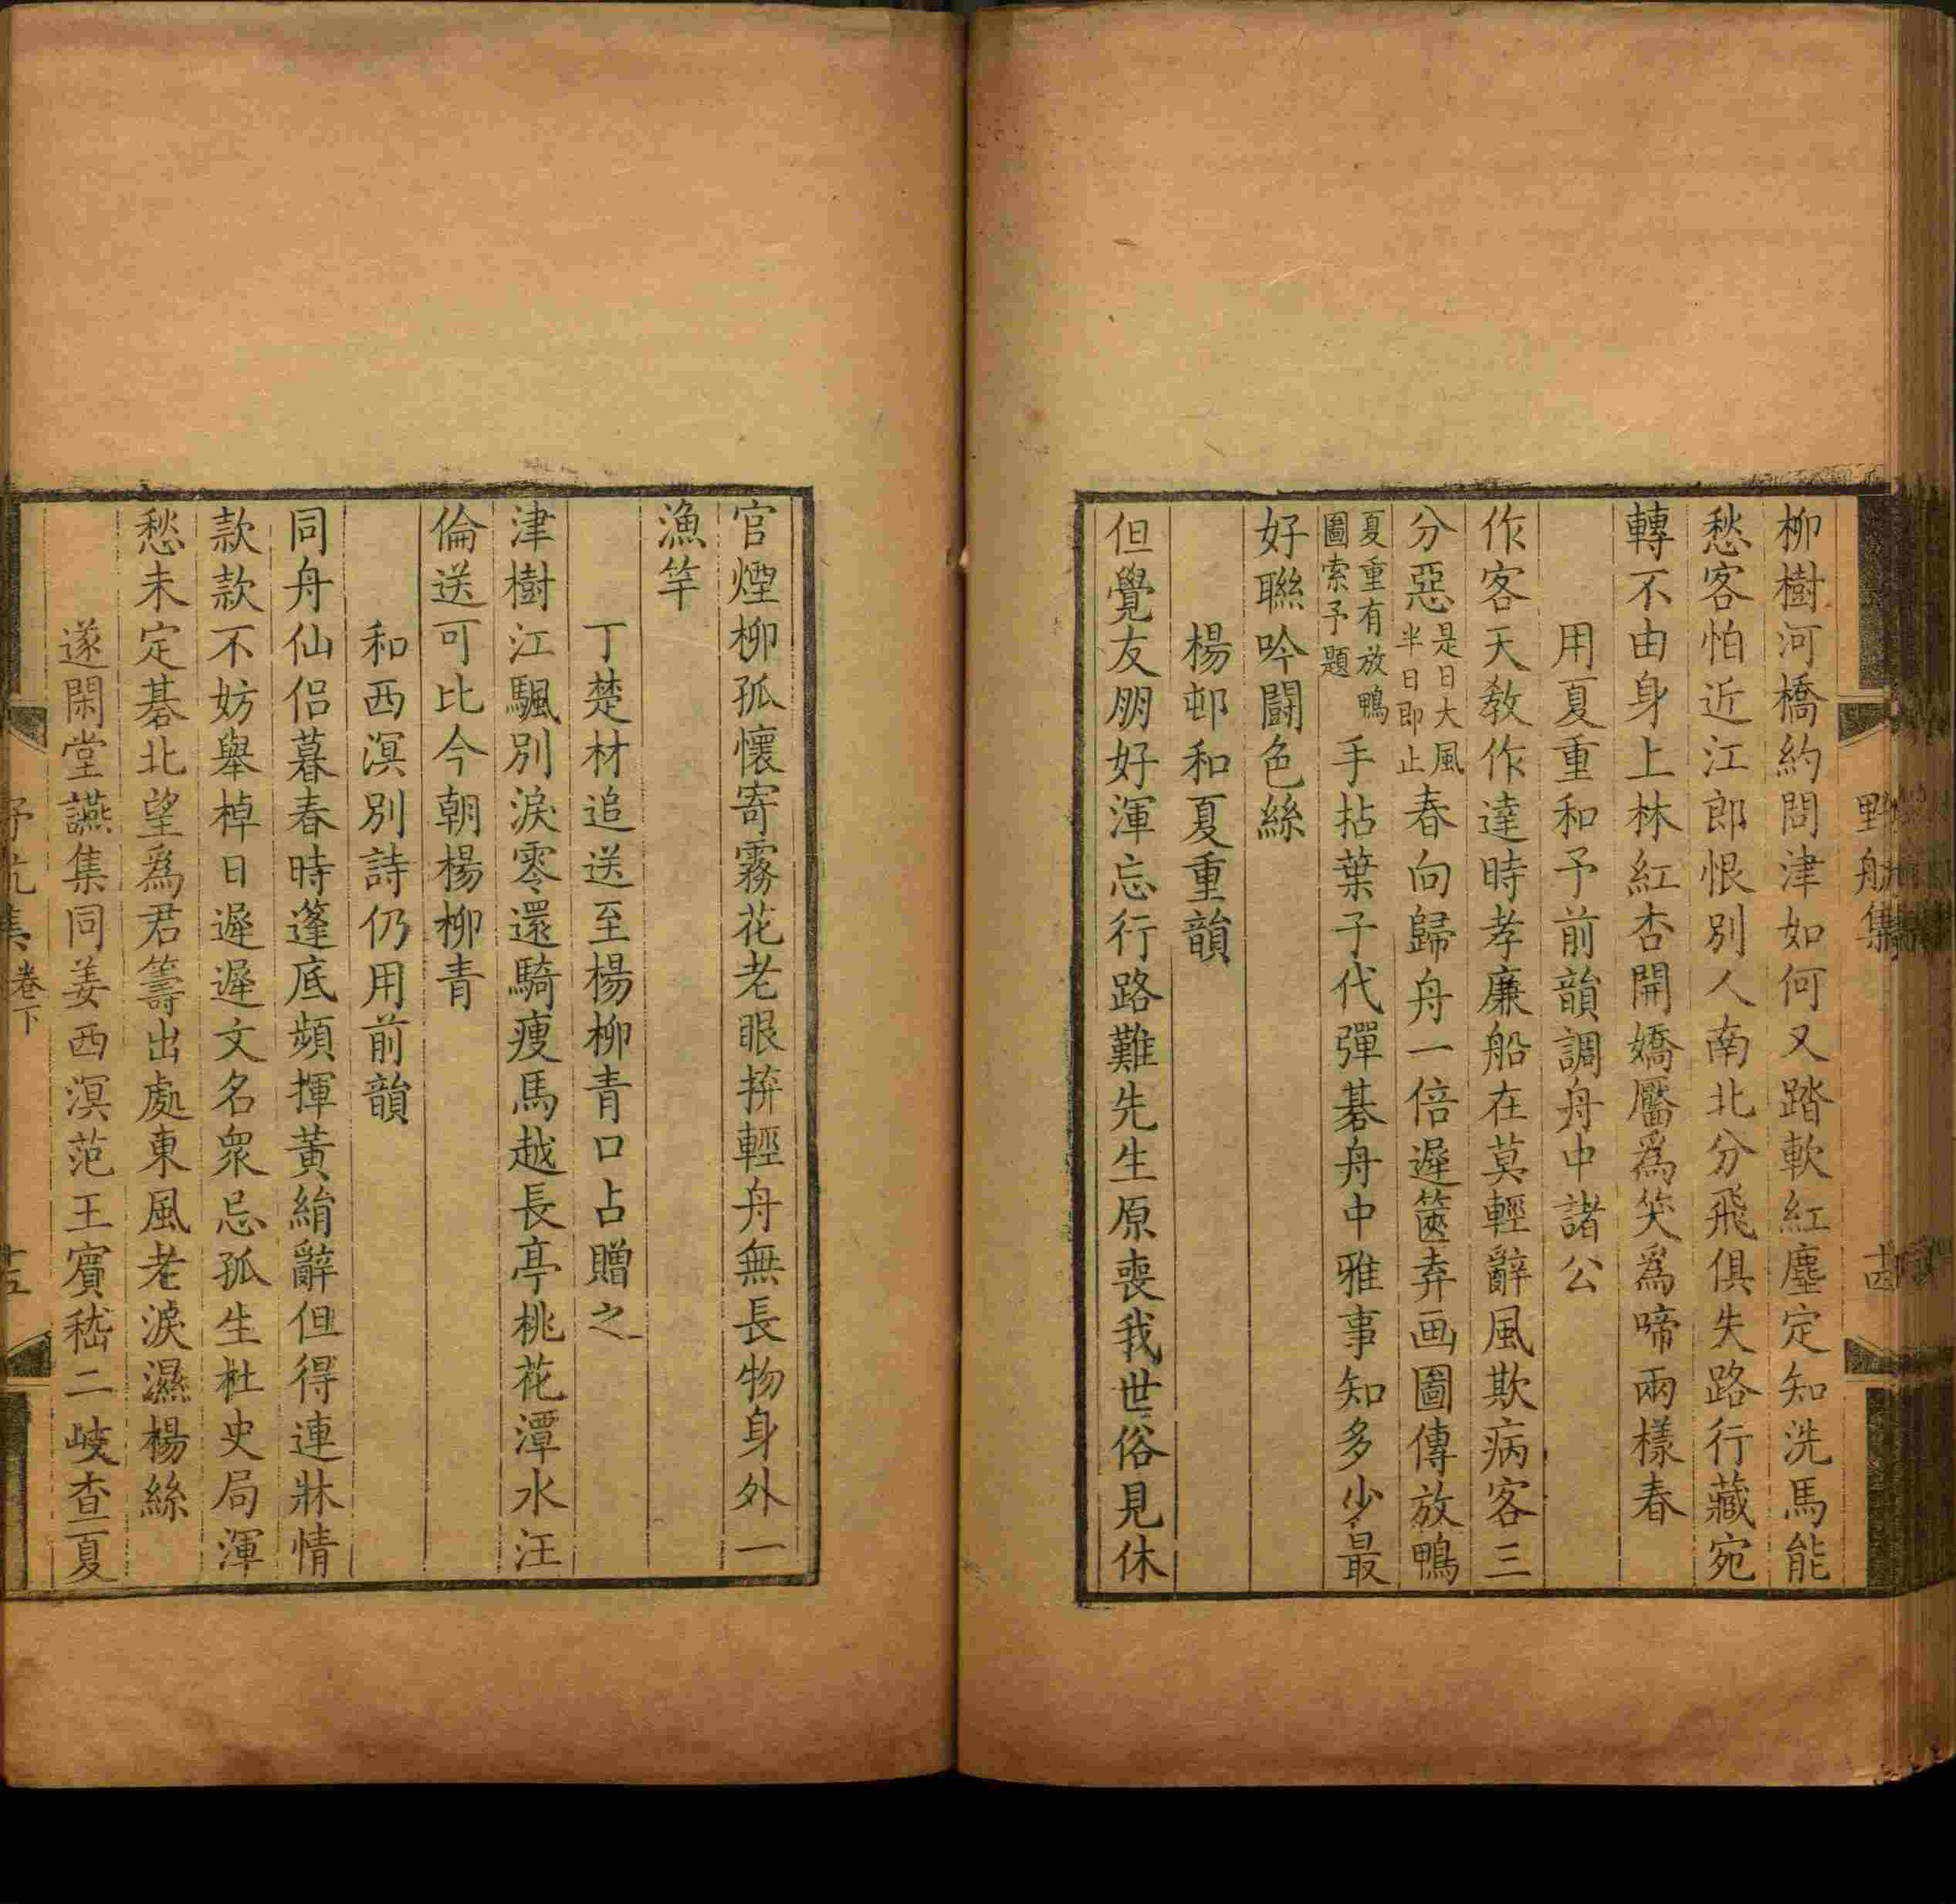 野航集
十四
柳樹河橋約問津如何又踏軟紅塵定知洗馬能
愁客怕近江郎恨別人南北分飛俱失路行藏宛
轉不由身上林紅杏開嬌靨爲笑爲啼兩樣春
用夏重和予前韻調舟中諸公
作客天教作達時孝廉船在莫輕辭風欺病客三
分惡是日大風半日即止春向歸舟一倍遲篋弆画圖傳放鴨
夏重有放鴨圖索予題手拈葉子代彈棊舟中雅事知多少最
好聯吟闘色絲
楊邨和夏重韻
但覺友朋好渾忘行路難先生原喪我世俗見休
官煙柳孤懷寄霧花老眼拚輕舟無長物身外一
漁竿
丁楚材追送至楊柳青口占贈之
津樹江颿別淚零還騎瘦馬越長亭桃花潭水汪
倫送可比今朝楊柳青
和西溟別詩仍用前韻
同舟仙侶暮春時蓬底頻揮黃絹辭但得連牀情
款款不妨舉棹日遲遲文名衆忌孤生杜史局渾
愁未定棊北望爲君籌出處東風老淚濕楊絲
遂閑堂讌集同姜西溟范王賓嵇二岐查夏
卷下
十五